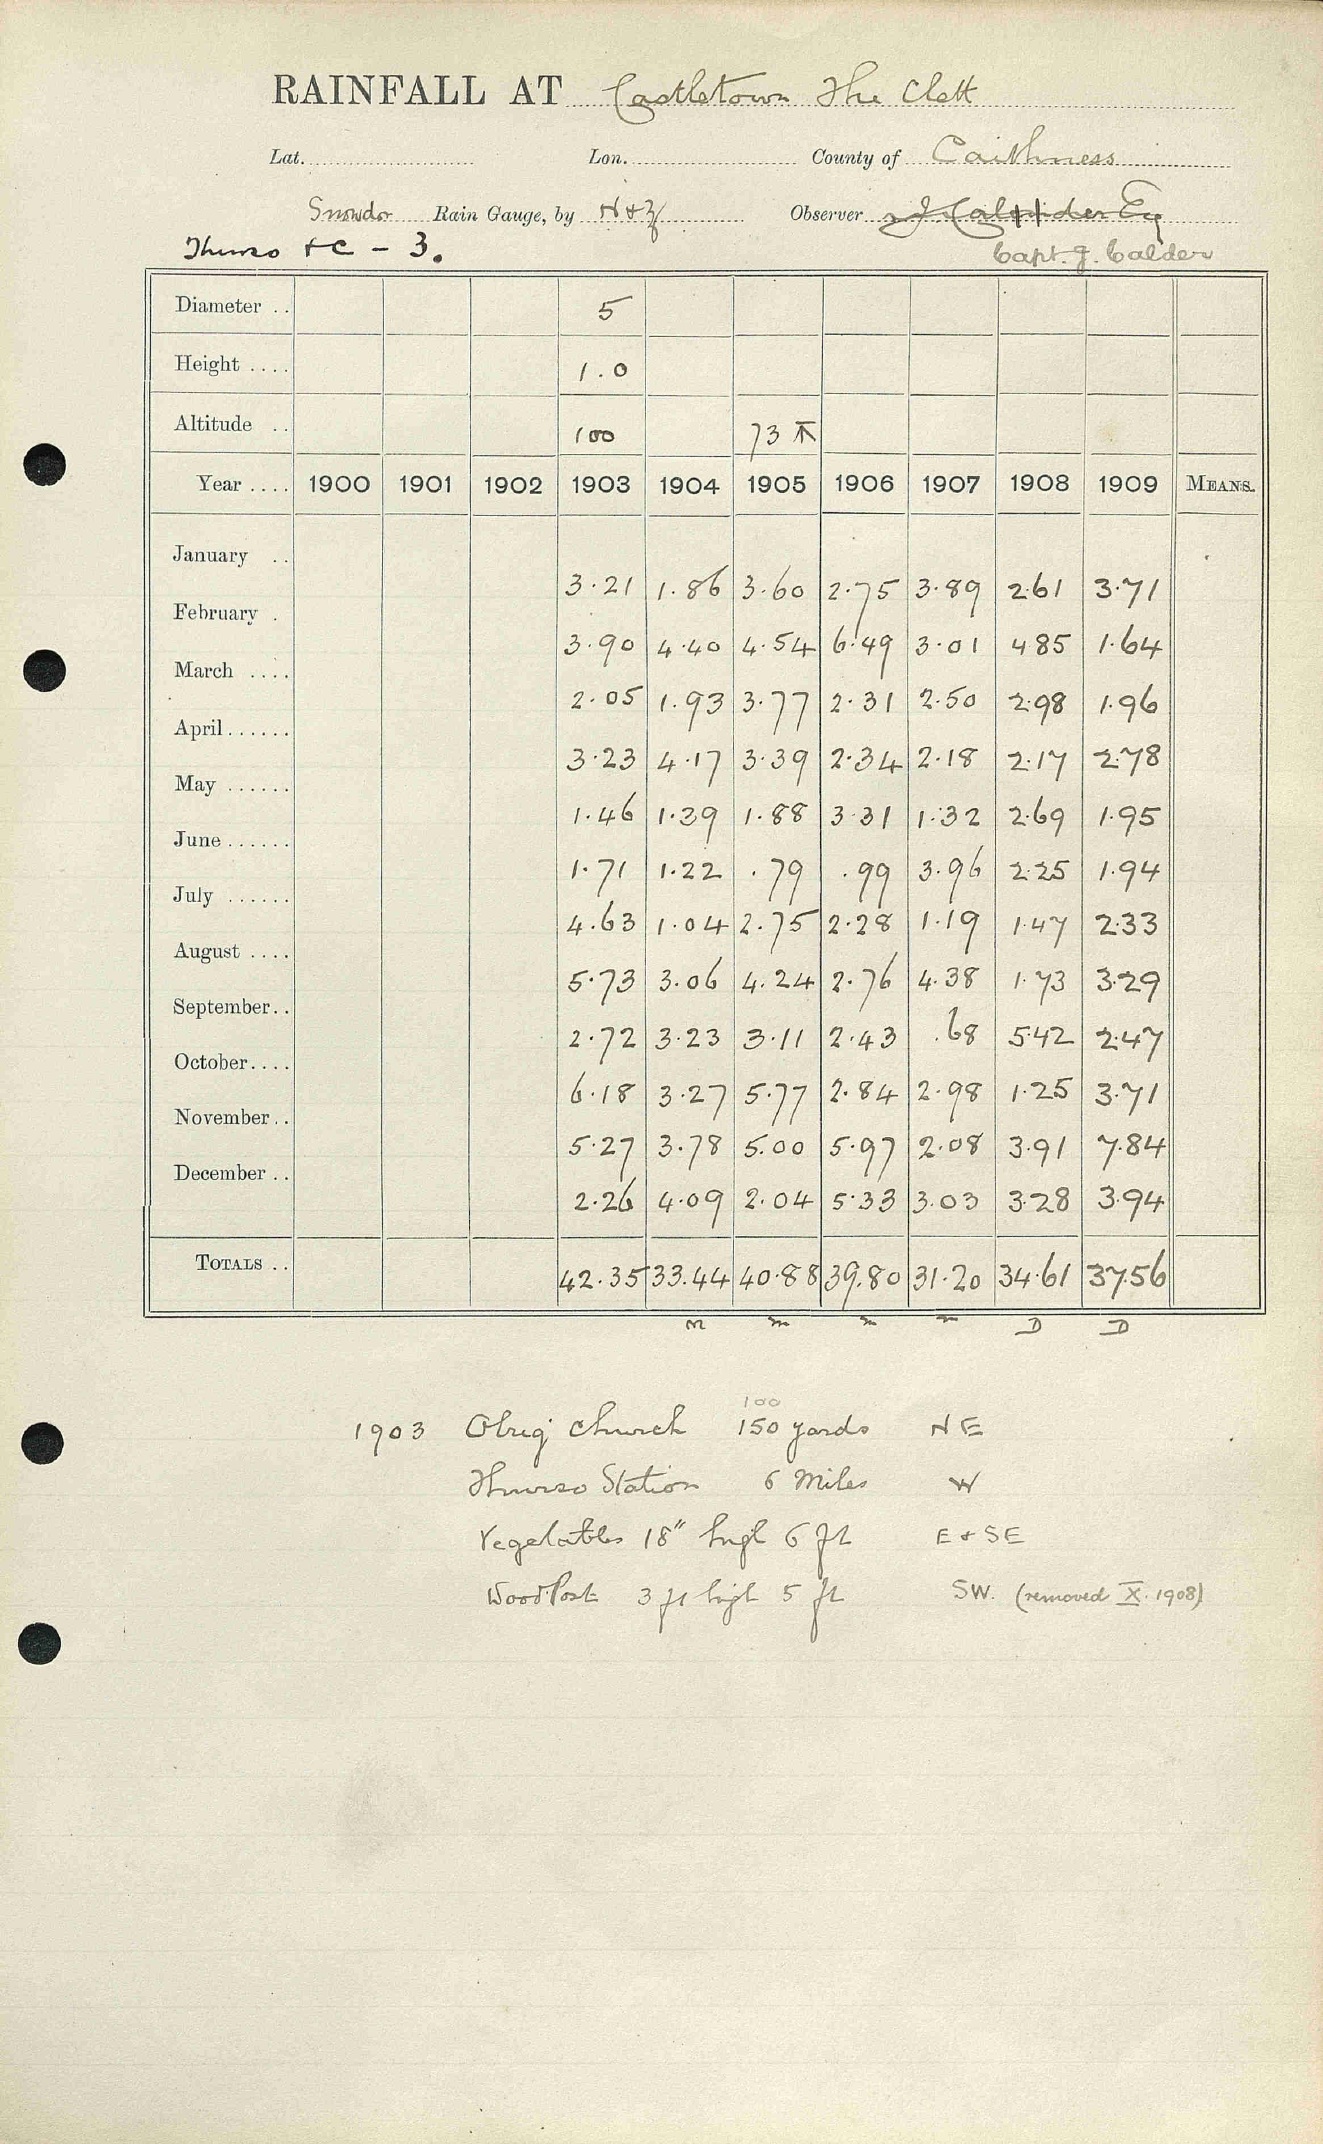 RAINFALL AT Castletown The Clett
Lat. Lon. County of Caithness
Snowdon Rain Gauge, by N+Z Observer Esq
Thurso +c - 3. Capt. J. Calder
Diameter .. 5
Height .... 1.0
Altitude .. 100 73
Year .... 1900 1901 1902 1903 1904 1905 1906 1907 1908 1909 MEANS.
January .. 3.21 1.86 3.60 2.75 3.89 2.61 3.71
February . 3.90 4.40 4.54 6.49 3.01 4 85 1.64
March .... 2.05 1.93 3.77 2.31 2.50 2.98 1.96
April...... 3.23 4.17 3.39 2.34 2.18 2.17 2.78
May ...... 1.46 1.39 1.88 3.31 1.32 2.69 1.95
June ...... 1.71 1.22 .79 .99 3.96 2.25 1.94
July ...... 4.63 1.04 2.75 2.28 1.19 1.47 2.33
August .... 5.73 3.06 4.24 2.76 4.38 1.73 3.29
September.. 2.72 3.23 3.11 2.43 .68 5.42 2.47
October.... 6.18 3.27 5.77 2.84 2.98 1.25 3.71
November.. 5.27 3.78 5.00 5.97 2.08 3.91 7.84
December .. 2.26 4.09 2.04 5.33 3.03 3.28 3.94
TOTALS .. 42.35 33.44 40.88 39.80 31.20 34.61 37.56
m m m m D D
100
1903 Olrig Church 150 yards NE
Thurso Station 6 Miles W
Vegetables 18" high 6 ft E + SE
Wood Post 3 ft high 5 ft SW. (removed X. 1908)